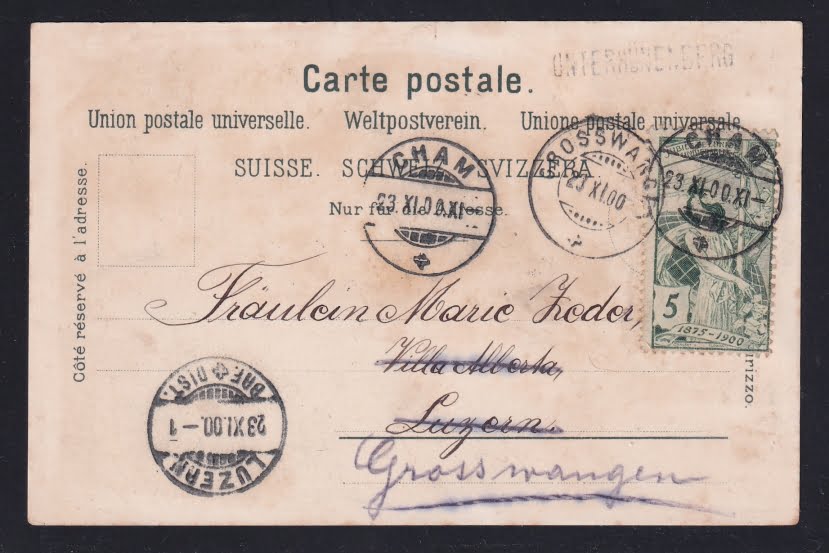 UNTERHÜNENBERG
Carte postale.
Union postale universelle. Weltpostverein. Unione postale universale
SUISSE. SCHWEIZ. SVIZZERA.
Nur für die Adresse.
Côté réservé à l'adresse.
CHAM
23.XI.00.XI–
GROSSWANGEN
23.XI.00
CHAM
23.XI.00.XI–
5
1875-1900
irizzo.
Fräulein Marie Zoder,
Villa Alberta,
Luzern.
Grosswangen
LUZERN
23.XI.00.–1
BRF. DIST.